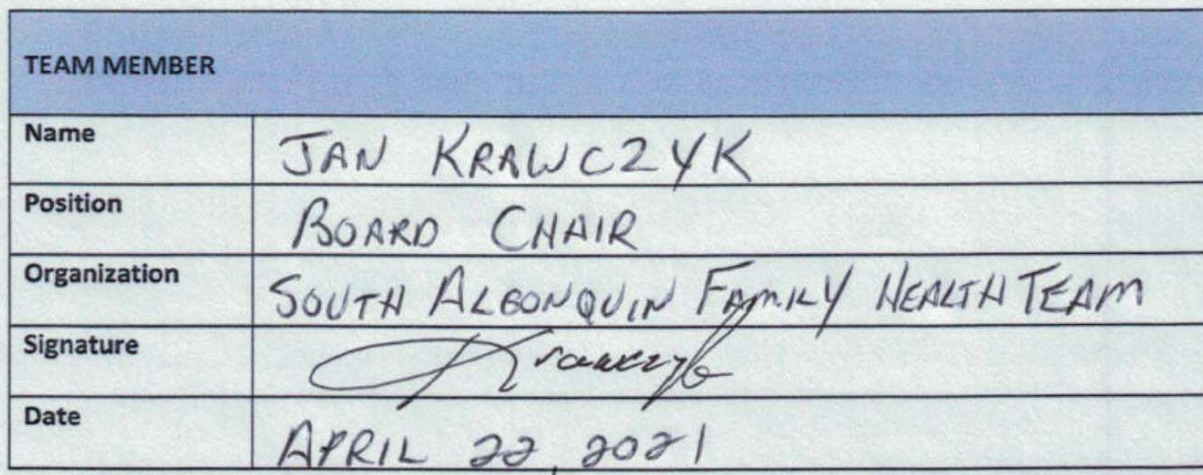 TEAM MEMBER
Name JAN KRAWCZYK
Position BOARD CHAIR
Organization SOUTH ALGONQUIN FAMILY HEALTH TEAM
Signature Krawczyk
Date APRIL 22, 2021